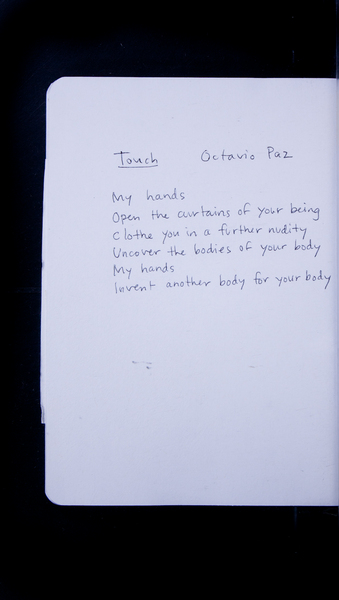 Touch Octavio Paz
My hands
Open the curtains of your being
Clothe you in a further nudity
Uncover the bodies of your body
My hands
Invent another body for your body